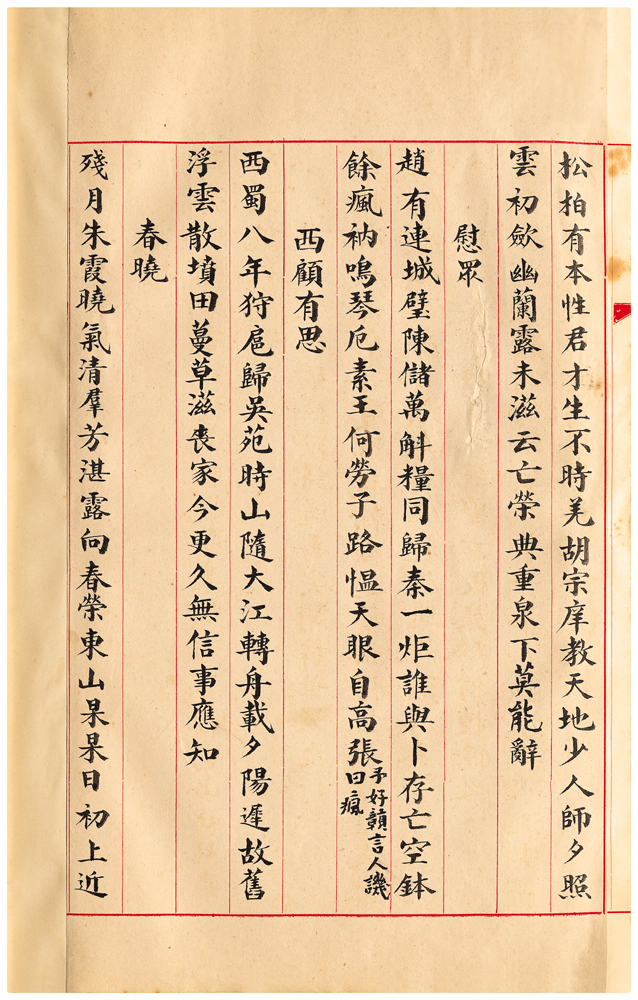 松柏有本性君才生不時羌胡宗庠教天地少人師夕照
雲初歛幽蘭露未滋云亡榮典重泉下莫能辭
慰眾
趙有連城璧陳儲萬斛糧同歸秦一炬誰與卜存亡空鉢
餘瘋衲鳴琴厄素王何勞子路慍天眼自高張
予好贛言人譏
曰瘋
西顧有思
西蜀八年狩扈歸吳苑時山隨大江轉舟載夕陽遲故舊
浮雲散墳田蔓草滋喪家今更久無信事應知
春曉
殘月朱霞曉氣清羣芳湛露向春榮東山杲杲日初上近